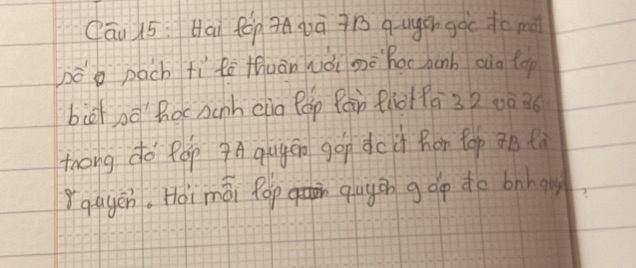 Câu 15: Hai lớp 7A và 7B quyên góc đc một
số sách tỉ lệ thuận với số học sinh của lớp
biết số học sinh của lớp lần lượt là 32 và 36
trong đó lớp 7A quyên góp đc ít hơn lớp 7B là
8 quyển. Hỏi mỗi lớp quyên góp đc bnh